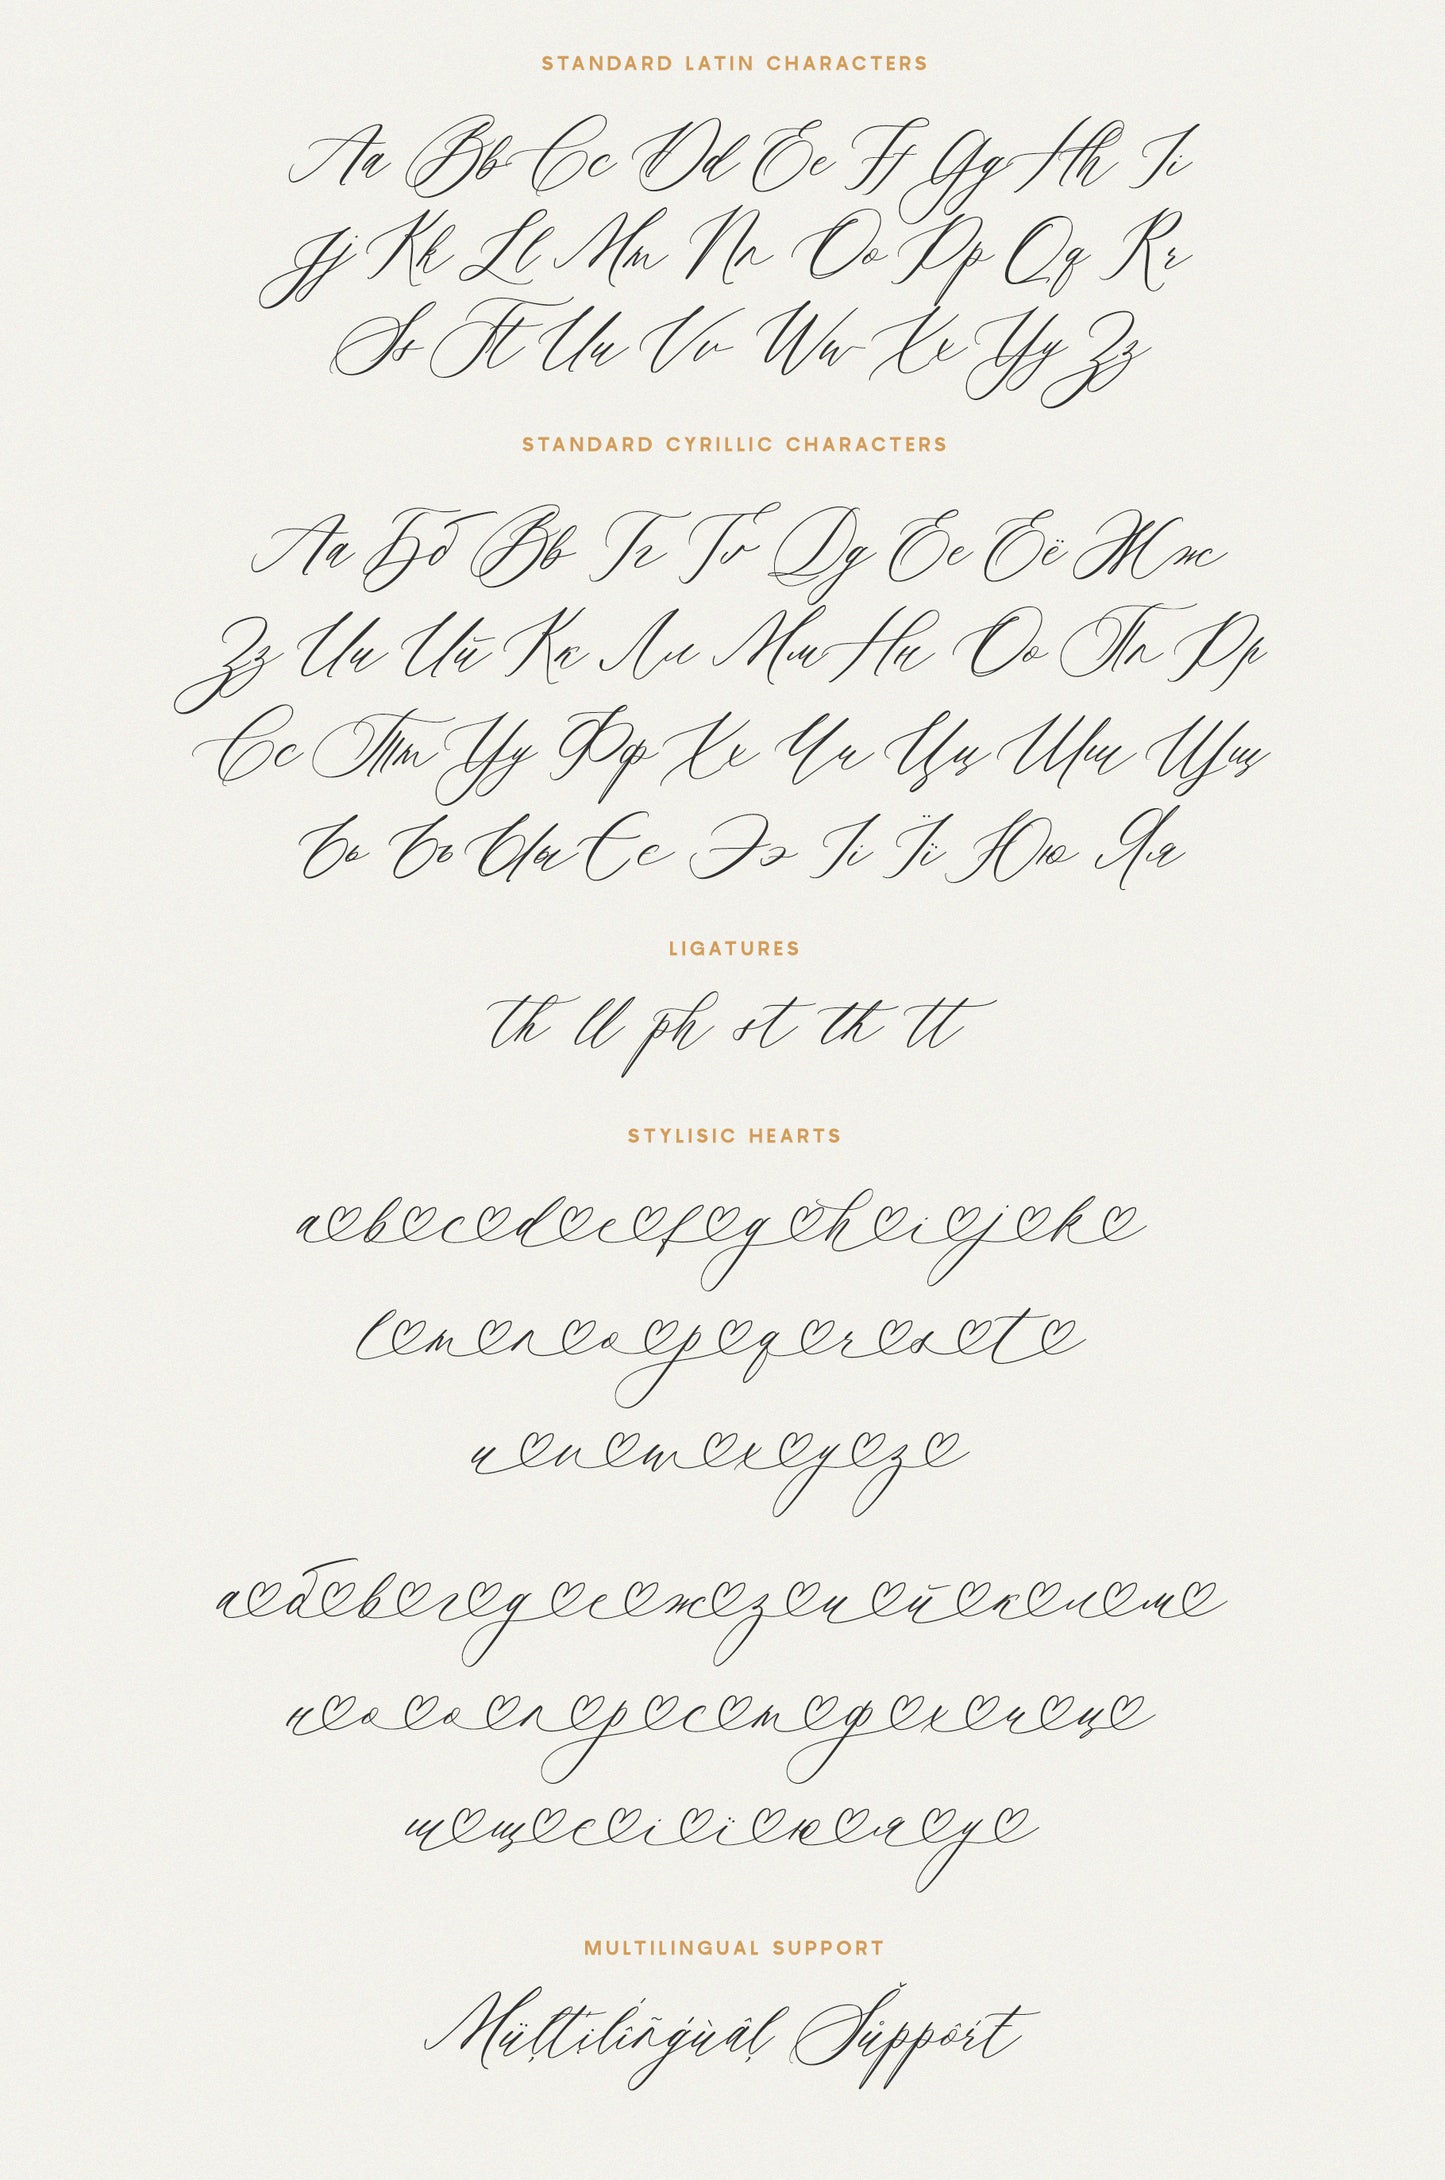 STANDARD LATIN CHARACTERS
Aa Bb Cc Dd Ee Ff Gg Hh Ii
Jj Kk Ll Mm Nn Oo Pp Qq Rr
Ss Tt Uu Vv Ww Xx Yy Zz
STANDARD CYRILLIC CHARACTERS
Аа Бб Вв Гг Ґґ Дд Ее Её Жж
Зз Ии Ий Кк Лл Мм Нн Оо Пп Рр
Сс Тт Уу Фф Хх Чч Цц Шш Щщ
Ьь Ъъ Ыы Єє Ээ Іі Її Юю Яя
LIGATURES
th ll ph st th tt
STYLISIC HEARTS
a b c d e f g h i j k
l m n o p q r s t
u v w x y z
а б в г д е ж з и й к л м
н о о п р с т ф х ч ц
ш щ є і ї ю я у
MULTILINGUAL SUPPORT